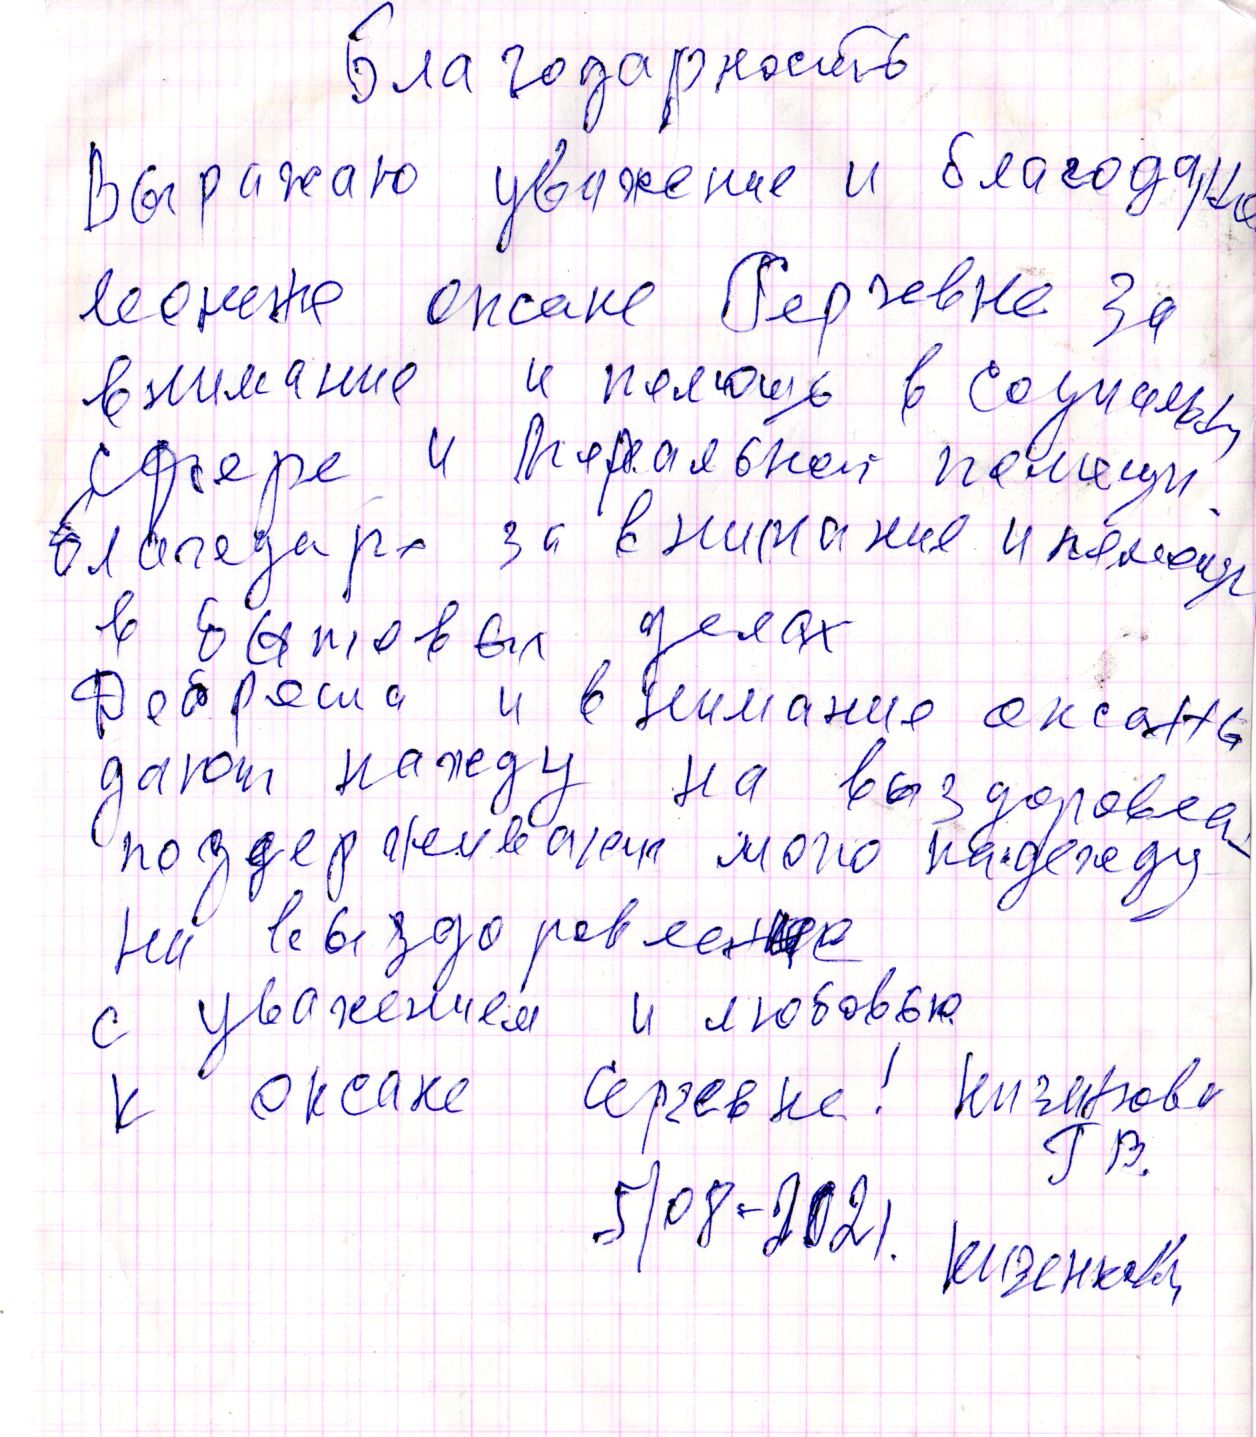 Благодарность
Выражаю уважение и благодарно
оксане Сергевне за
внимание и помощь в социальн
сфере и моральной помощи
благодарю за внимание и помощь
в бытовы делах
Доброта и внимание оксаны
дают на выздоровле
поддерживают мою надежду
на выздоровление
с уважением и любовью
к оксане Сергевне!
Г В.
5/08-2021.